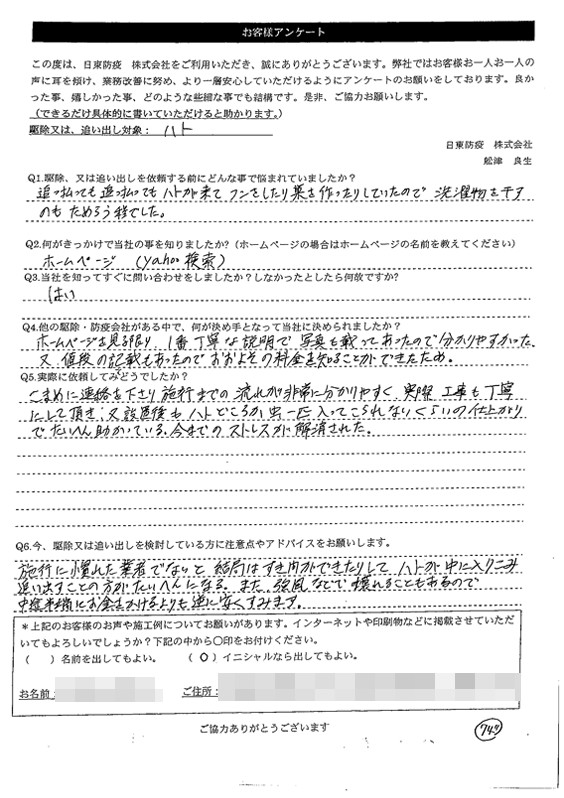 お客様アンケート
この度は、日東防疫 株式会社をご利用いただき、誠にありがとうございます。弊社ではお客様お一人お一人の
声に耳を傾け、業務改善に努め、より一層安心していただけるようにアンケートのお願いをしております。良か
った事、嬉しかった事、どのような些細な事でも結構です。是非、ご協力お願いします。
(できるだけ具体的に書いていただけると助かります。)
駆除又は、追い出し対象: ハト
日東防疫 株式会社
舩津 良生
Q1.駆除、又は追い出しを依頼する前にどんな事で悩まれていましたか?
追っ払っても追っ払ってもハトが来てフンをしたり巣を作ったりしていたので洗濯物を干す
のもためろう程でした。
Q2.何がきっかけで当社の事を知りましたか?(ホームページの場合はホームページの名前を教えてください)
ホームページ (yahoo検索)
Q3.当社を知ってすぐに問い合わせをしましたか?しなかったとしたら何故ですか?
はい
Q4.他の駆除・防疫会社がある中で、何が決め手となって当社に決められましたか?
ホームページを見る限り 1番丁寧な説明で写真も載ってあったので分かりやすかった
又、値段の記載もあったのでおおよその料金を知ることができたため。
Q5.実際に依頼してみどうでしたか?
こまめに連絡を下さり施行までの流れが非常に分かりやすく 実際工事も丁寧
にして頂き、又設置後もハトどころか虫一匹入ってこられないくらいの仕上がり
でたいへん助かっている、今までのストレスが解消された。
Q6.今、駆除又は追い出しを検討している方に注意点やアドバイスをお願いします。
施行に慣れた業者でないと結局はすき間ができたりしてハトが中に入りこみ
追い出すことの方がたいへんになる。また、強風などで壊れることもあるので
中途半端にお金をかけるよりも逆に安くすみます。
*上記のお客様のお声や施工例についてお願いがあります。インターネットや印刷物などに掲載させていただ
いてもよろしいでしょうか?下記の中から○印をお付けください。
( )名前を出してもよい。 (○)イニシャルなら出してもよい。
お名前: ご住所:
ご協力ありがとうございます
747